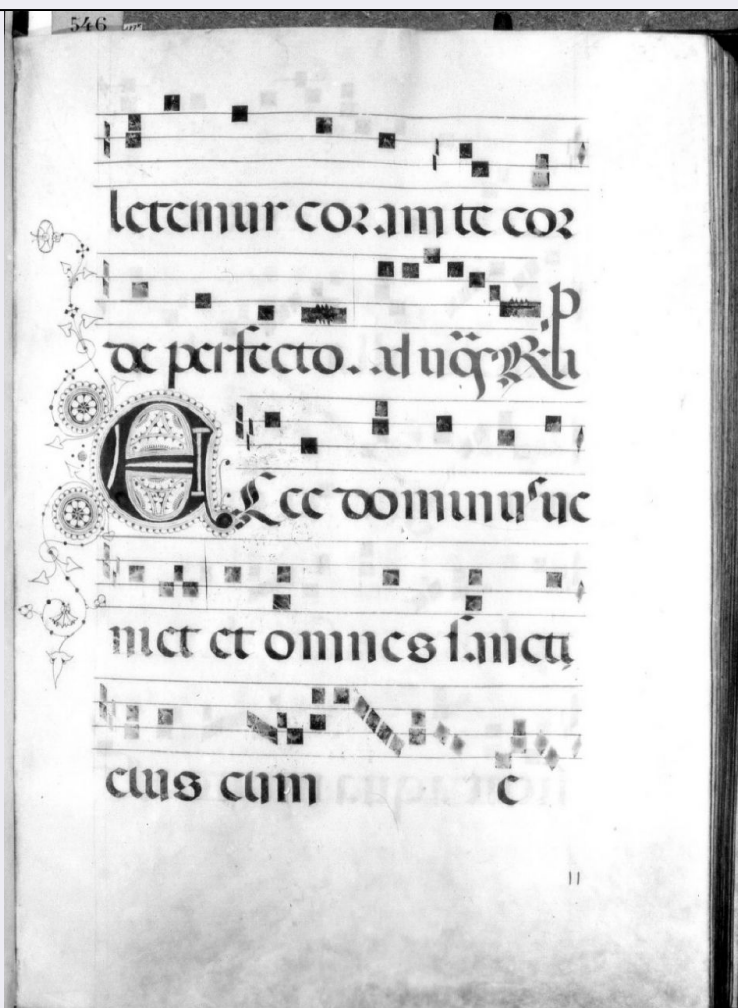 546
letemur coram te cor
de perfecto. al
Ecce dominus ue
niet et omnes sancti
eius cum e
11